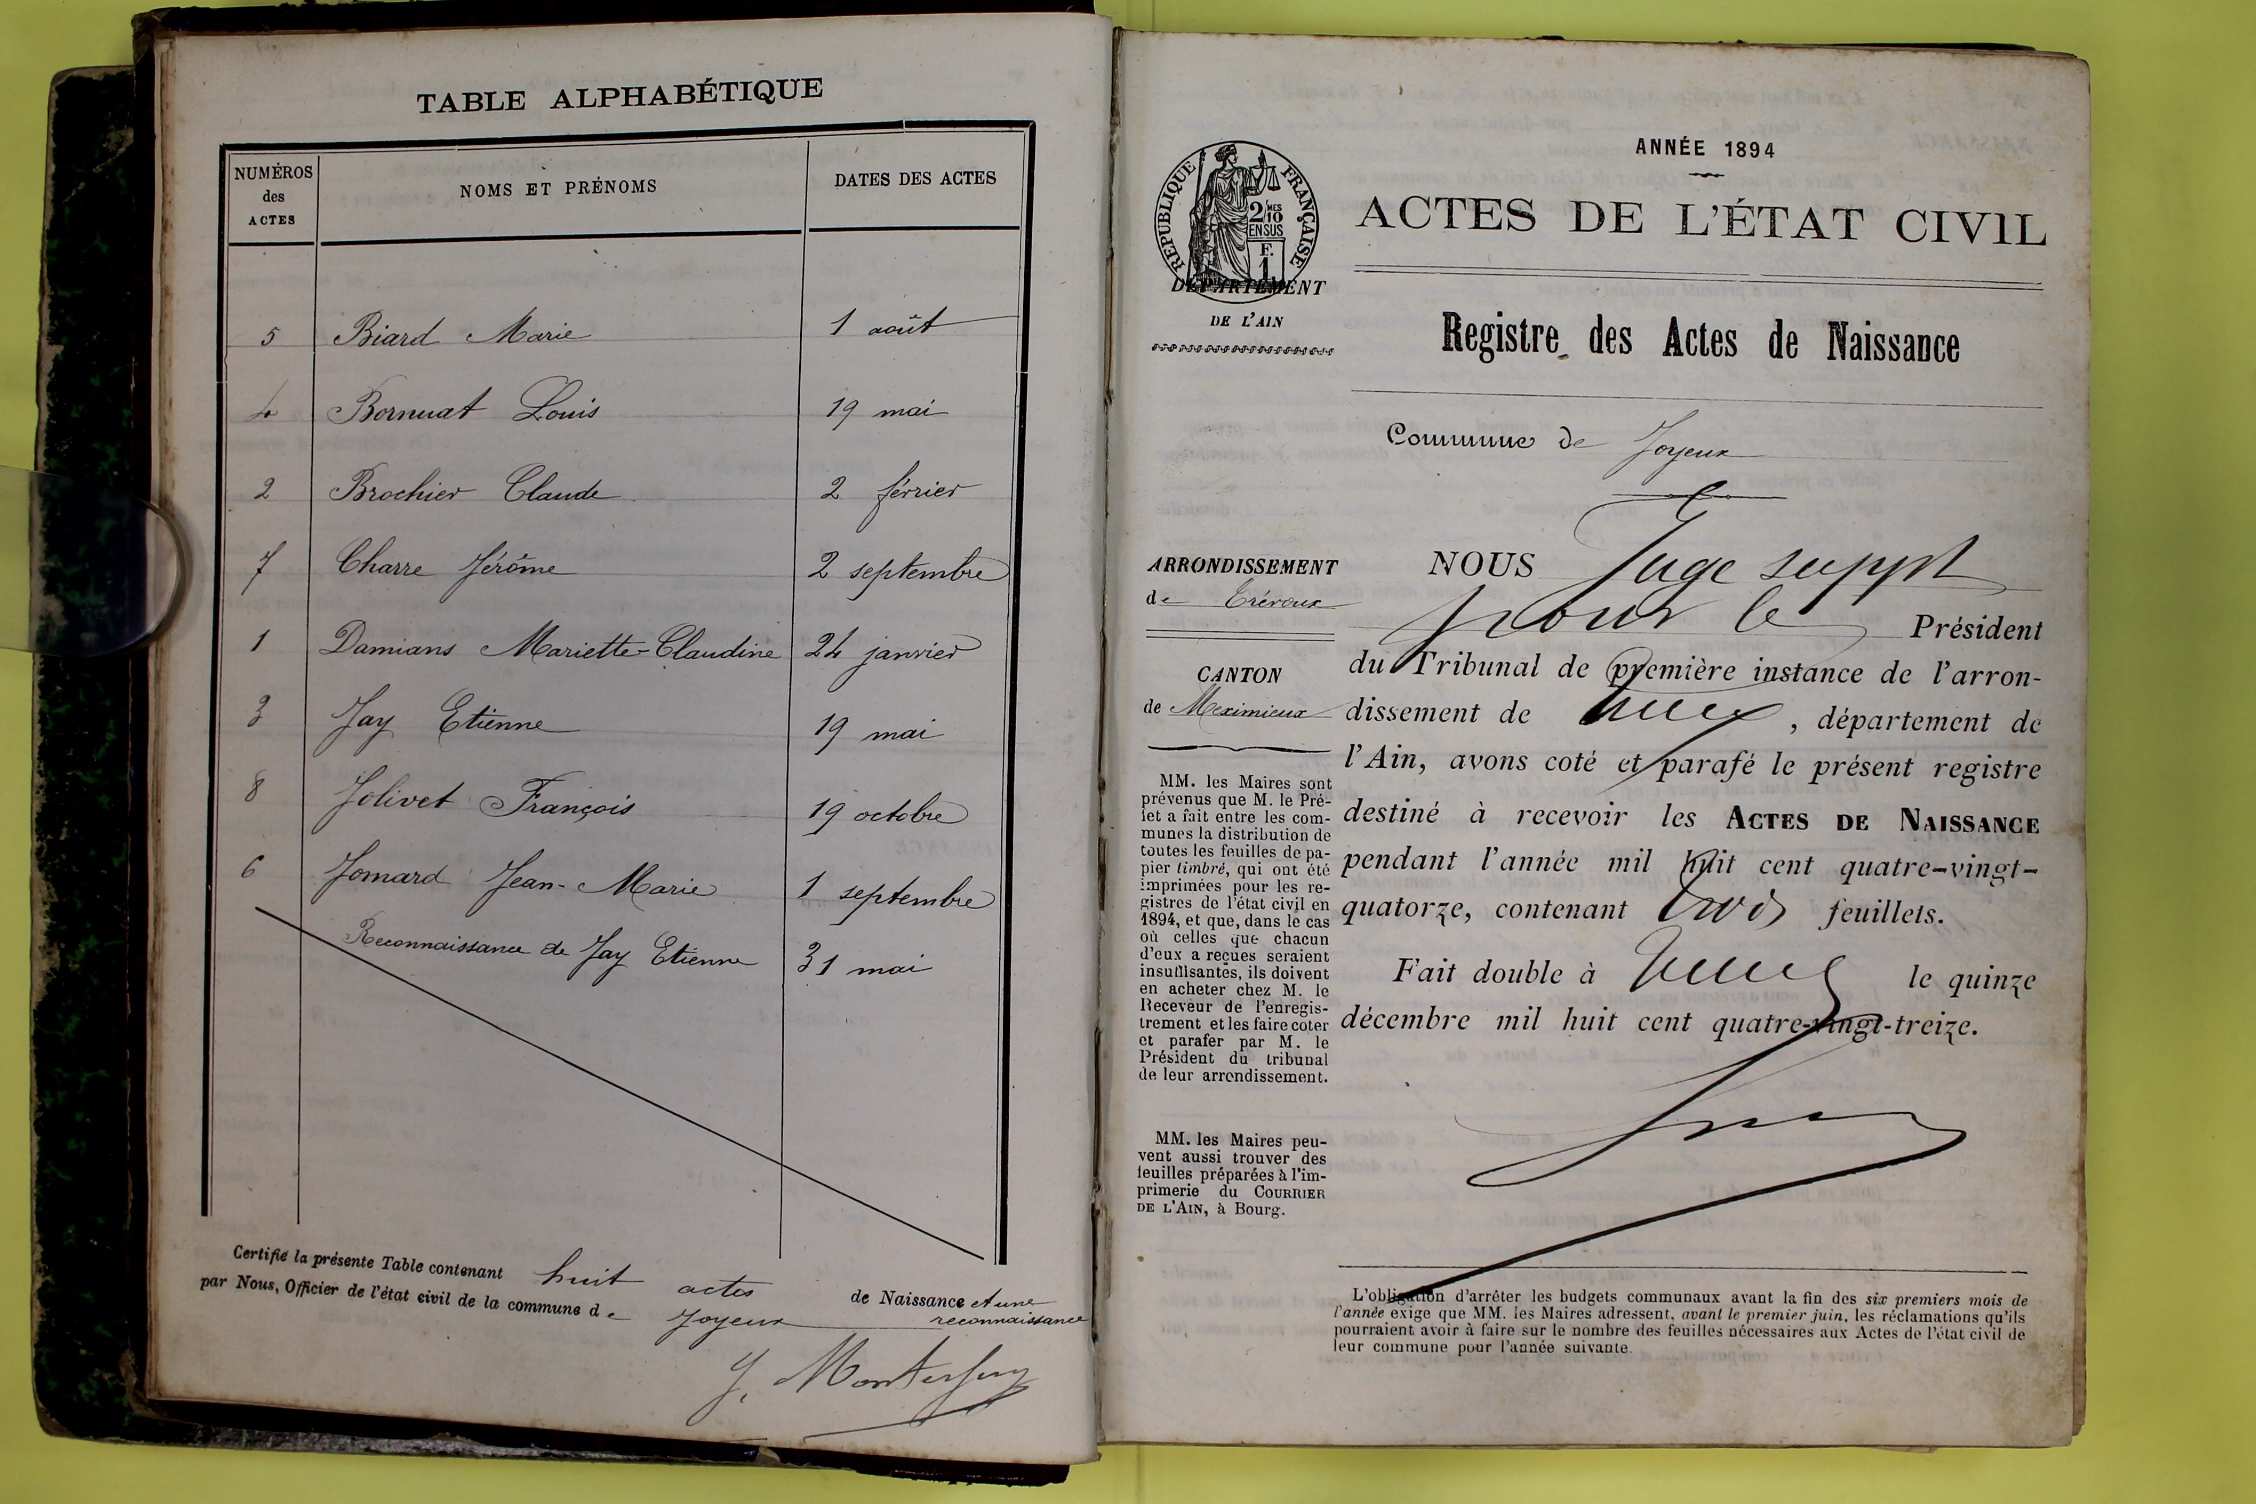 TABLE ALPHABÉTIQUE
NUMÉROS des ACTES NOMS ET PRÉNOMS DATES DES ACTES
5 Biard Marie 1 août
4 Bornuat Louis 19 mai
2 Brochier Claude 2 février
7 Charre Jérôme 2 septembre
1 Damians Mariette-Claudine 24 janvier
3 Jay Etienne 19 mai
8 Jolivet François 19 octobre
6 Jomard Jean-Marie 1 septembre
Reconnaissance de Jay Etienne 31 mai
Certifié la présente Table contenant huit actes de Naissance et une
reconnaissance
par Nous, Officier de l'état civil de la commune de Joyeux
RÉPUBLIQUE FRANÇAISE
2/10MES
EN SUS
F.
1
DÉPARTEMENT
DE L'AIN
ARRONDISSEMENT
de Trévoux
CANTON
de Meximieux
MM. les Maires sont
prévenus que M. le Pré-
fet a fait entre les com-
munes la distribution de
toutes les feuilles de pa-
pier timbré, qui ont été
imprimées pour les re-
gistres de l'état civil en
1894, et que, dans le cas
où celles que chacun
d'eux a reçues seraient
insuffisantes, ils doivent
en acheter chez M. le
Receveur de l'enregis-
trement et les faire coter
et parafer par M. le
Président du tribunal
de leur arrondissement.
MM. les Maires peu-
vent aussi trouver des
feuilles préparées à l'im-
primerie du COURRIER
DE L'AIN, à Bourg.
ANNÉE 1894
ACTES DE L'ÉTAT CIVIL
Registre des Actes de Naissance
Commune de Joyeux
NOUS Juge suppt
pour le Président
du Tribunal de première instance de l'arron-
dissement de Trévoux, département de
l'Ain, avons coté et parafé le présent registre
destiné à recevoir les ACTES DE NAISSANCE
pendant l'année mil huit cent quatre-vingt-
quatorze, contenant trois feuillets.
Fait double à Trévoux le quinze
décembre mil huit cent quatre-vingt-treize.
L'obligation d'arrêter les budgets communaux avant la fin des six premiers mois de
l'année exige que MM. les Maires adressent, avant le premier juin, les réclamations qu'ils
pourraient avoir à faire sur le nombre des feuilles nécessaires aux Actes de l'état civil de
leur commune pour l'année suivante.